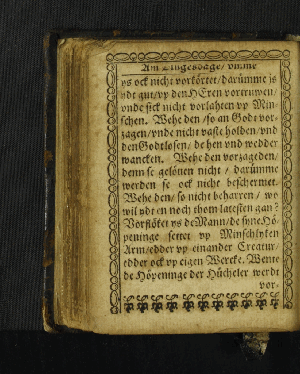 Am Dingesdage / vmme
ys ock nicht vorkörtet / darümme is
ydt gut / vp den HEren vortruwen /
vnde sick nicht vorlahten vp Min-
schen. Wehe den / so an Godt vor-
zagen / vnde nicht vaste holden / vnd
den Godtlosen / de hen vnd wedder
wancken. Wehe den vorzageden /
denn se gelönen nicht / darümme
werden se ock nicht beschermet.
Wehe den / so nicht beharren / wo
wil ydt en noch thom latesten gan?
Vorflötet ys de Mann / de syne Hö-
peninge settet vp Minschlyken
Arm / edder vp einander Creatur /
edder ock vp eigen Wercke. Wente
de Höpeninge der Hücheler werdt
vor-